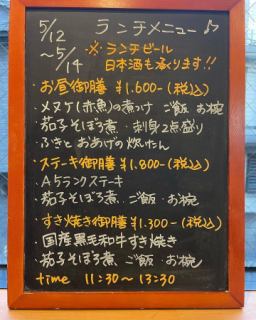 5/12 ランチメニュー♪
～5/14 ※ランチビール
日本酒も承ります!!
お昼御膳 ¥1.600-(税込)
・メヌケ(赤魚)の煮つけ ご飯 お椀
茄子そぼろ煮・刺身2点盛り
ふきとおあげの炊いたん
・ステーキ御膳 ¥1.800-(税込)
・A5ランクステーキ
・茄子そぼろ煮、ご飯・お椀
・すき焼き御膳 ¥1.300-(税込)
・国産黒毛和牛すき焼き
・茄子そぼろ煮、ご飯・お椀
time 11:30～13:30